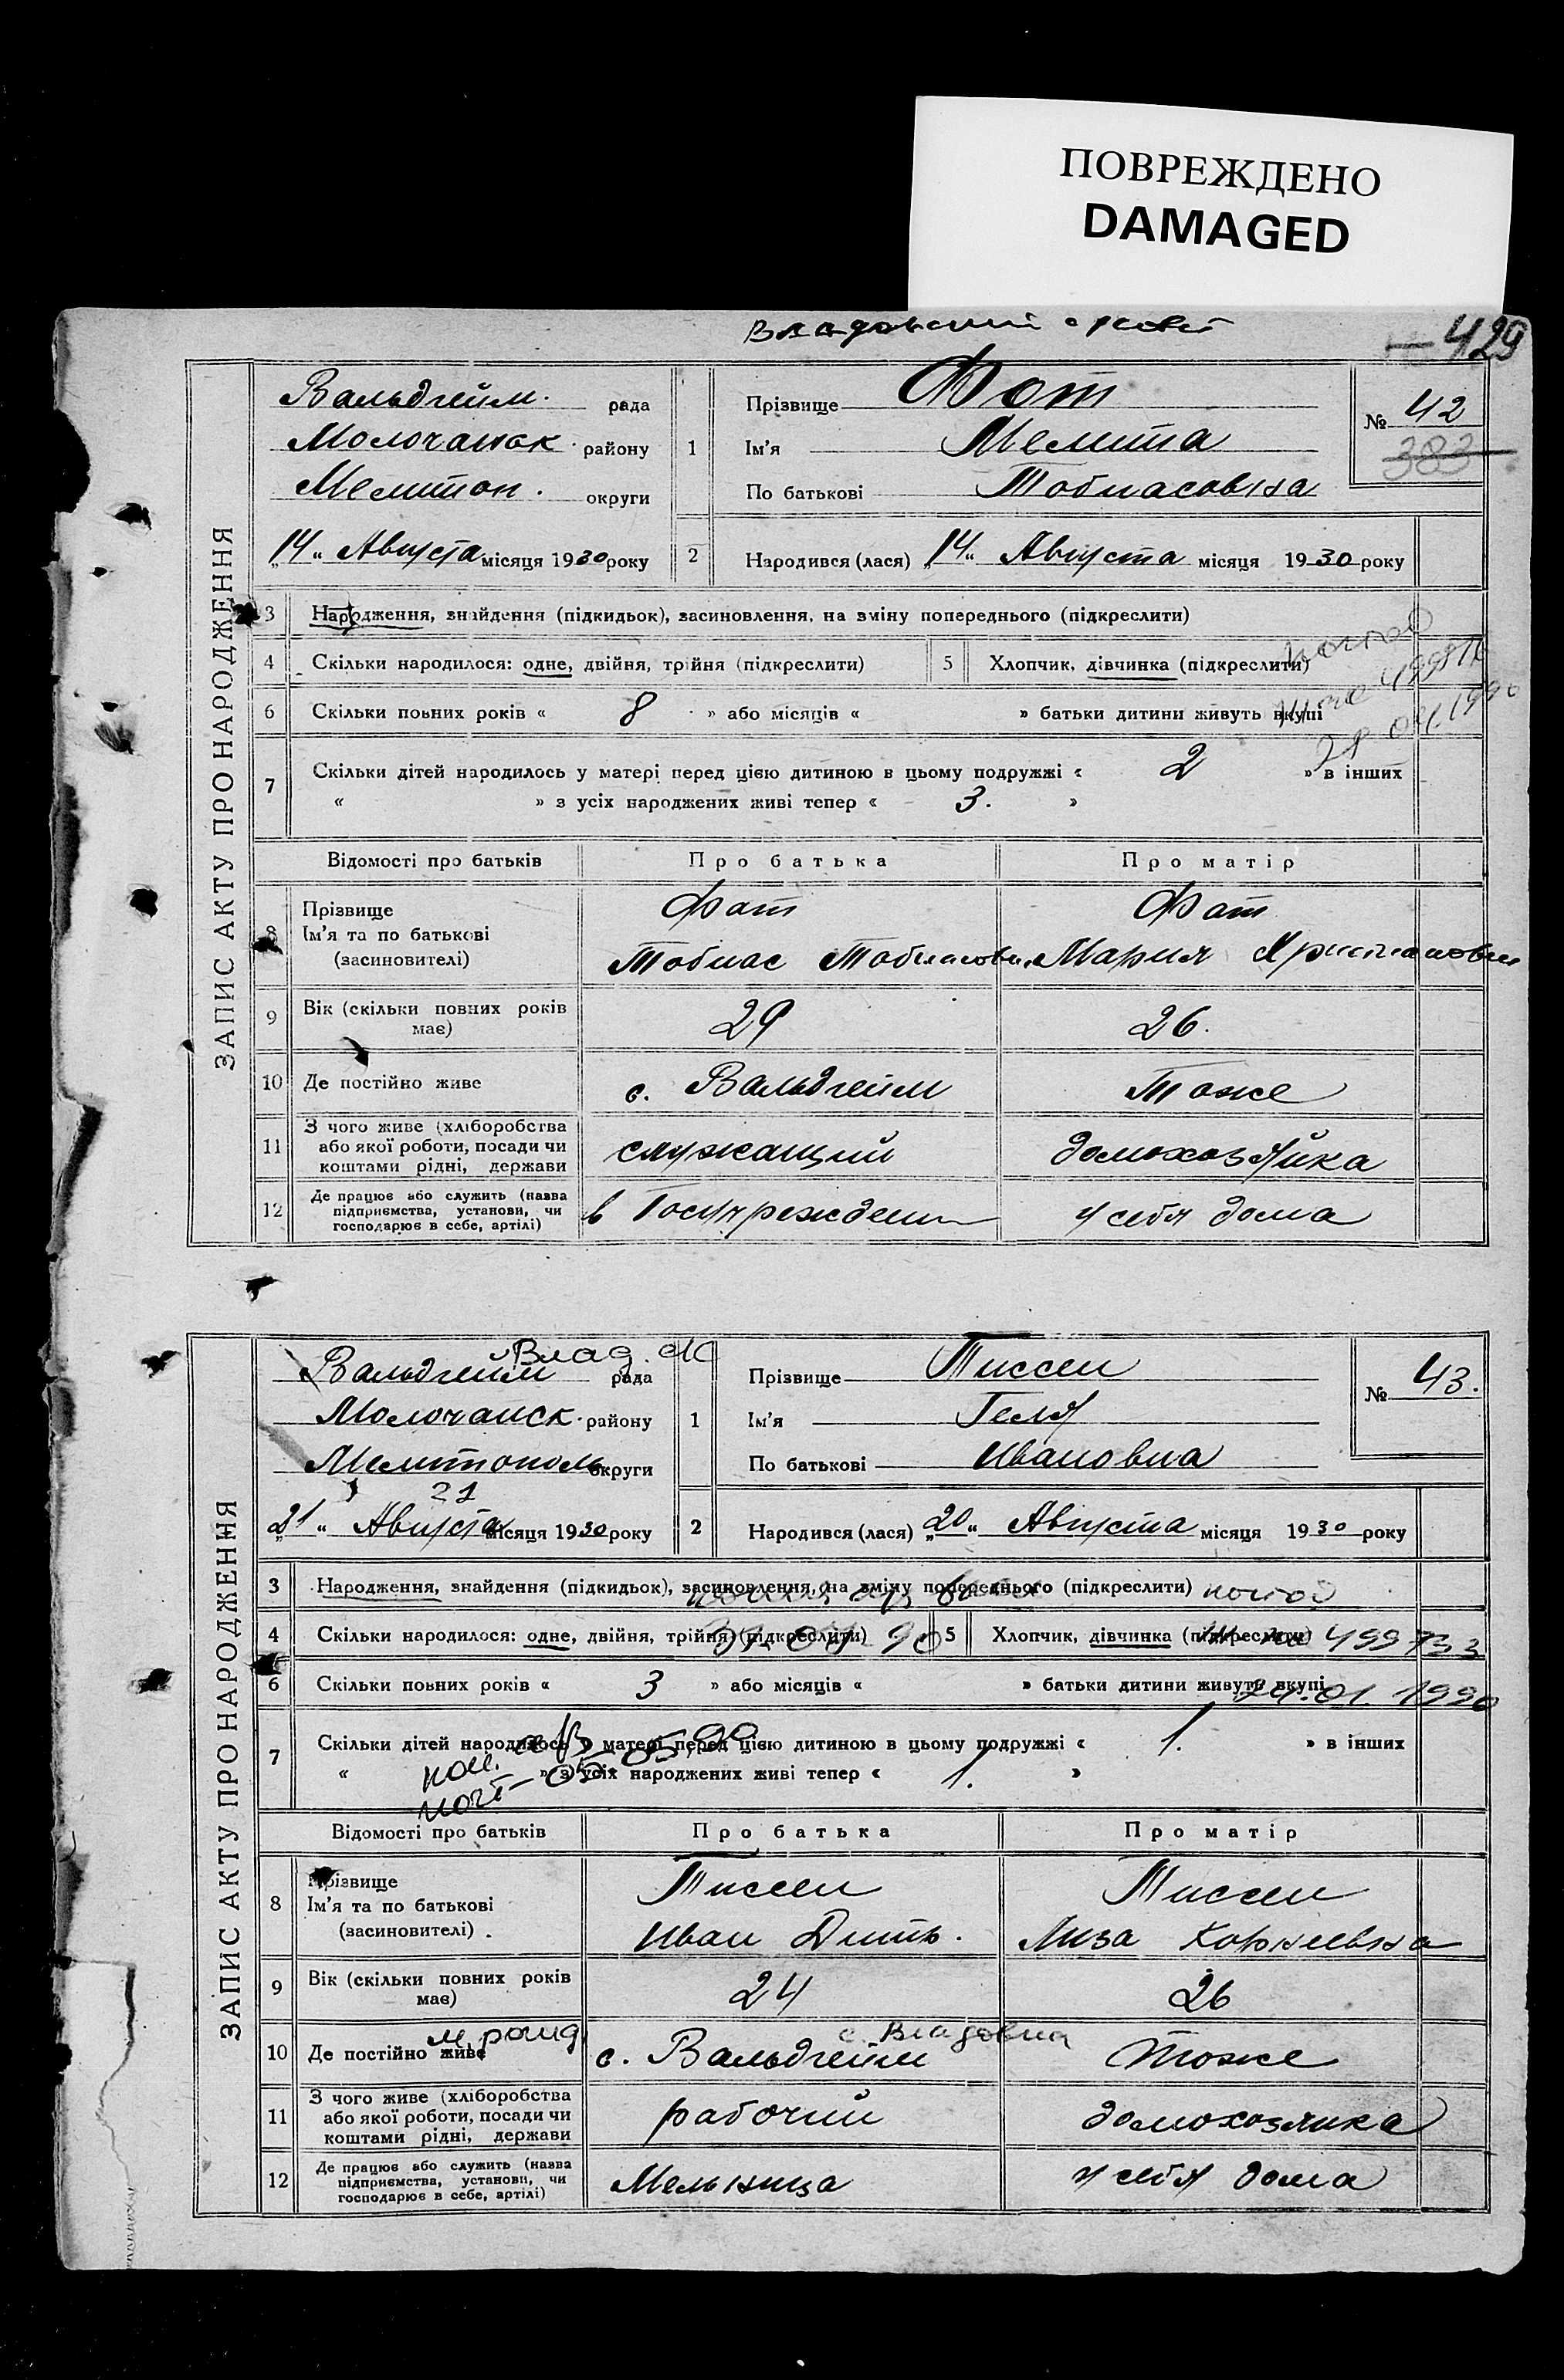 ПОВРЕЖДЕНО
DAMAGED
429
ЗАПИС АКТУ ПРО НАРОДЖЕННЯ
Вальдгейм. рада
Молочанск. району
Мелитоп. округи
„14“ Августа місяця 1930 року
1
Прізвище Фот
Ім'я Мелита
По батькові Тобиасовна
№ 42
383
2 Народився (лася) „14“ Августа місяця 1930 року
3 Народження, знайдення (підкидьок), засиновлення, на зміну попереднього (підкреслити)
4 Скільки народилося: одне, двійня, трійня (підкреслити) 5 Хлопчик, дівчинка (підкреслити)
6 Скільки повних років « 8 » або місяців « » батьки дитини живуть вкупі
7 Скільки дітей народилось у матері перед цією дитиною в цьому подружжі « 2 » в інших
« » з усіх народжених живі тепер « 3. »
Відомості про батьків Про батька Про матір
8 Прізвище Фот Фот
Ім'я та по батькові
(засновителі) Тобиас Мария
9 Вік (скільки повних років має) 29 26.
10 Де постійно живе с. Вальдгейм Тоже
11 З чого живе (хліборобства або якої роботи, посади чи коштами рідні, держави служащий домохозяйка
12 Де працює або служить (назва підприємства, установи, чи господарює в себе, артілі) в у себя дома
ЗАПИС АКТУ ПРО НАРОДЖЕННЯ
Влад.
Вальдгейм рада
Молочанск. району
Мелитополь округи
21
„21“ Августа місяця 1930 року
1
Прізвище Тиссен
Ім'я Геля
По батькові Ивановна
№ 43.
2 Народився (лася) „20“ Августа місяця 1930 року
3 Народження, знайдення (підкидьок), засиновлення, на зміну попереднього (підкреслити)
4 Скільки народилося: одне, двійня, трійня (підкреслити) 5 Хлопчик, дівчинка (підкреслити) 499733
6 Скільки повних років « 3 » або місяців « » батьки дитини живуть вкупі
7 Скільки дітей народилось у матері перед цією дитиною в цьому подружжі « 1. » в інших
« » з усіх народжених живі тепер « 1. »
Відомості про батьків Про батька Про матір
8 Прізвище Тиссен Тиссен
Ім'я та по батькові
(засиновителі) Иван Дмитр. Лиза Корнеевна
9 Вік (скільки повних років має) 24 26
10 Де постійно живе с. Вальдгейм Тоже
11 З чого живе (хліборобства або якої роботи, посади чи коштами рідні, держави рабочий домохозяйка
12 Де працює або служить (назва підприємства, установи, чи господарює в себе, артілі) Мельница у себя дома